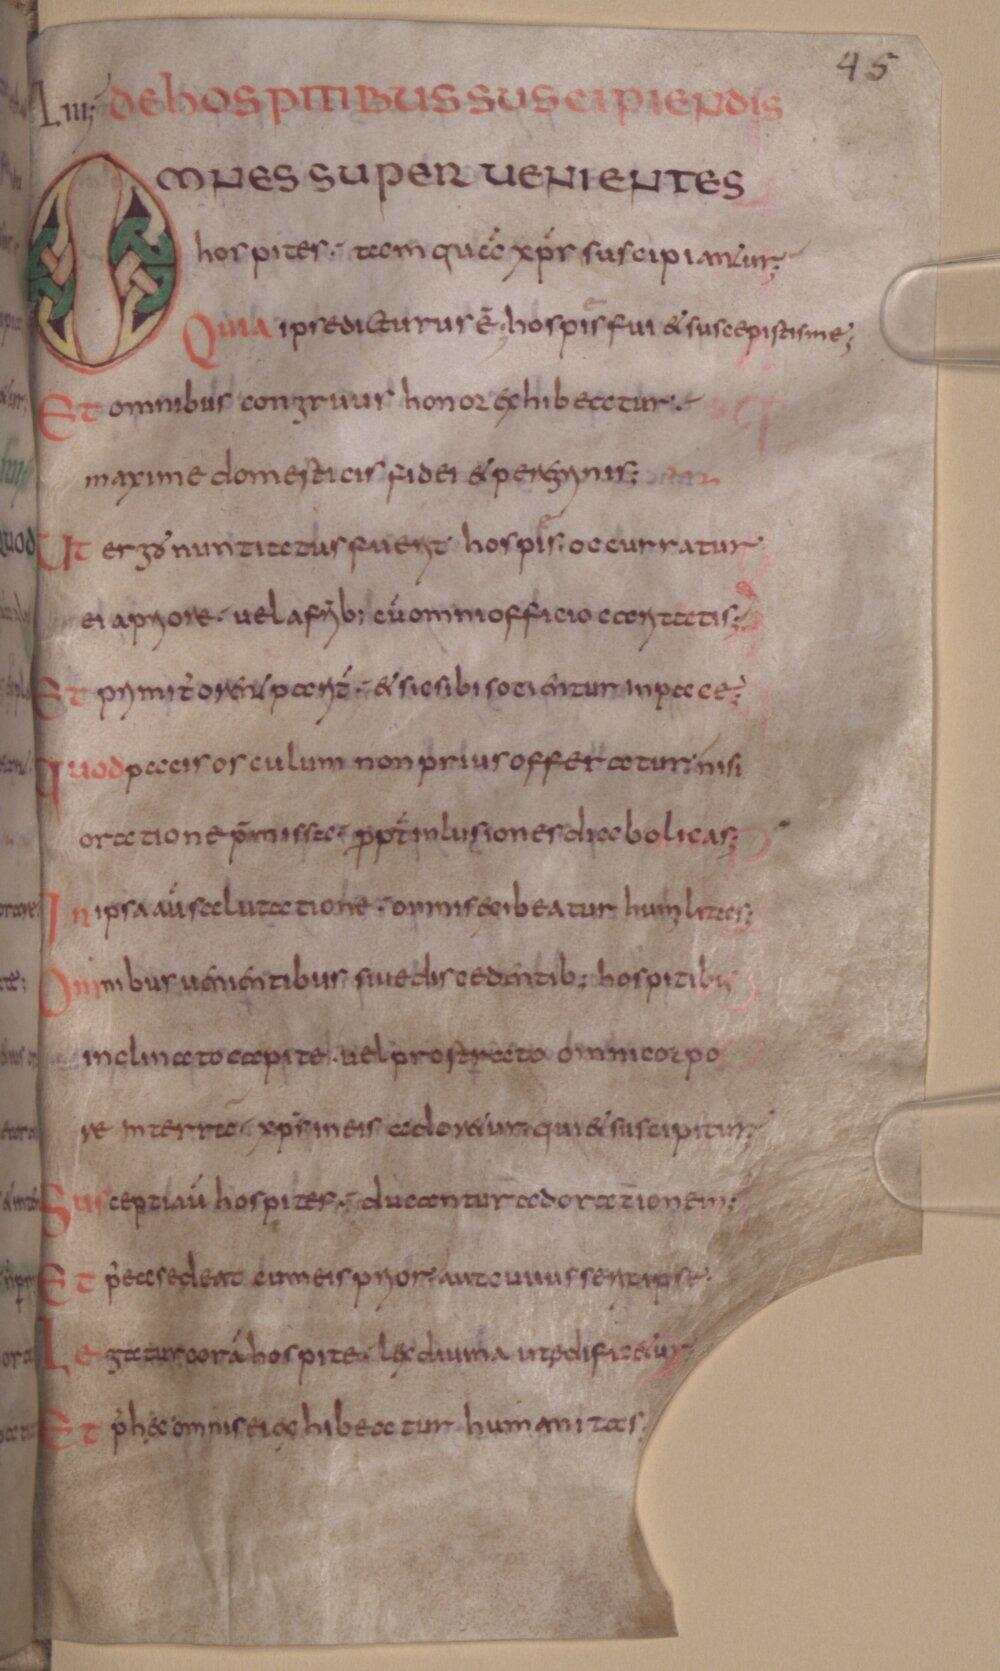 45
Liii; DE HOSPITIBUS SUSCIPIENDIS
OMNES SUPERVENIENTES
hospites. tamquā xp̄s suscipiantur;
Quia ipse dicturus ē; hospis fui & suscepistis me;
Et omnibus congruus honor exhibeatur.
maxime domesticis fidei & peregrinis;
Ut ergo nuntiatus fuerit hospis. occurratur
ei a priore. vel a frīb; cū omni officio caritatis;
Et primit̄ orent parit̄. & sic sibi socientur in pace;
Quod pacis osculum non prius offeratur. nisi
oratione p̄missa. propt̄ inlusiones diabolicas;
In ipsa aū salutatione. omnis exibeatur humilitas;
Omnibus venientibus sive discedentib; hospitibus
inclinato capite. vel prostrato omni corpo
re in terra. xp̄s in eis adoretur. qui & suscipitur;
Suscepti aū hospites. ducantur ad orationem;
Et p̄ea sedeat cum eis prior. aut cui iusserit ipse.
Legatur corā hospite. lex divina ut edificetur;
Et p̄ hęc omnis ei exhibeatur humanitas;